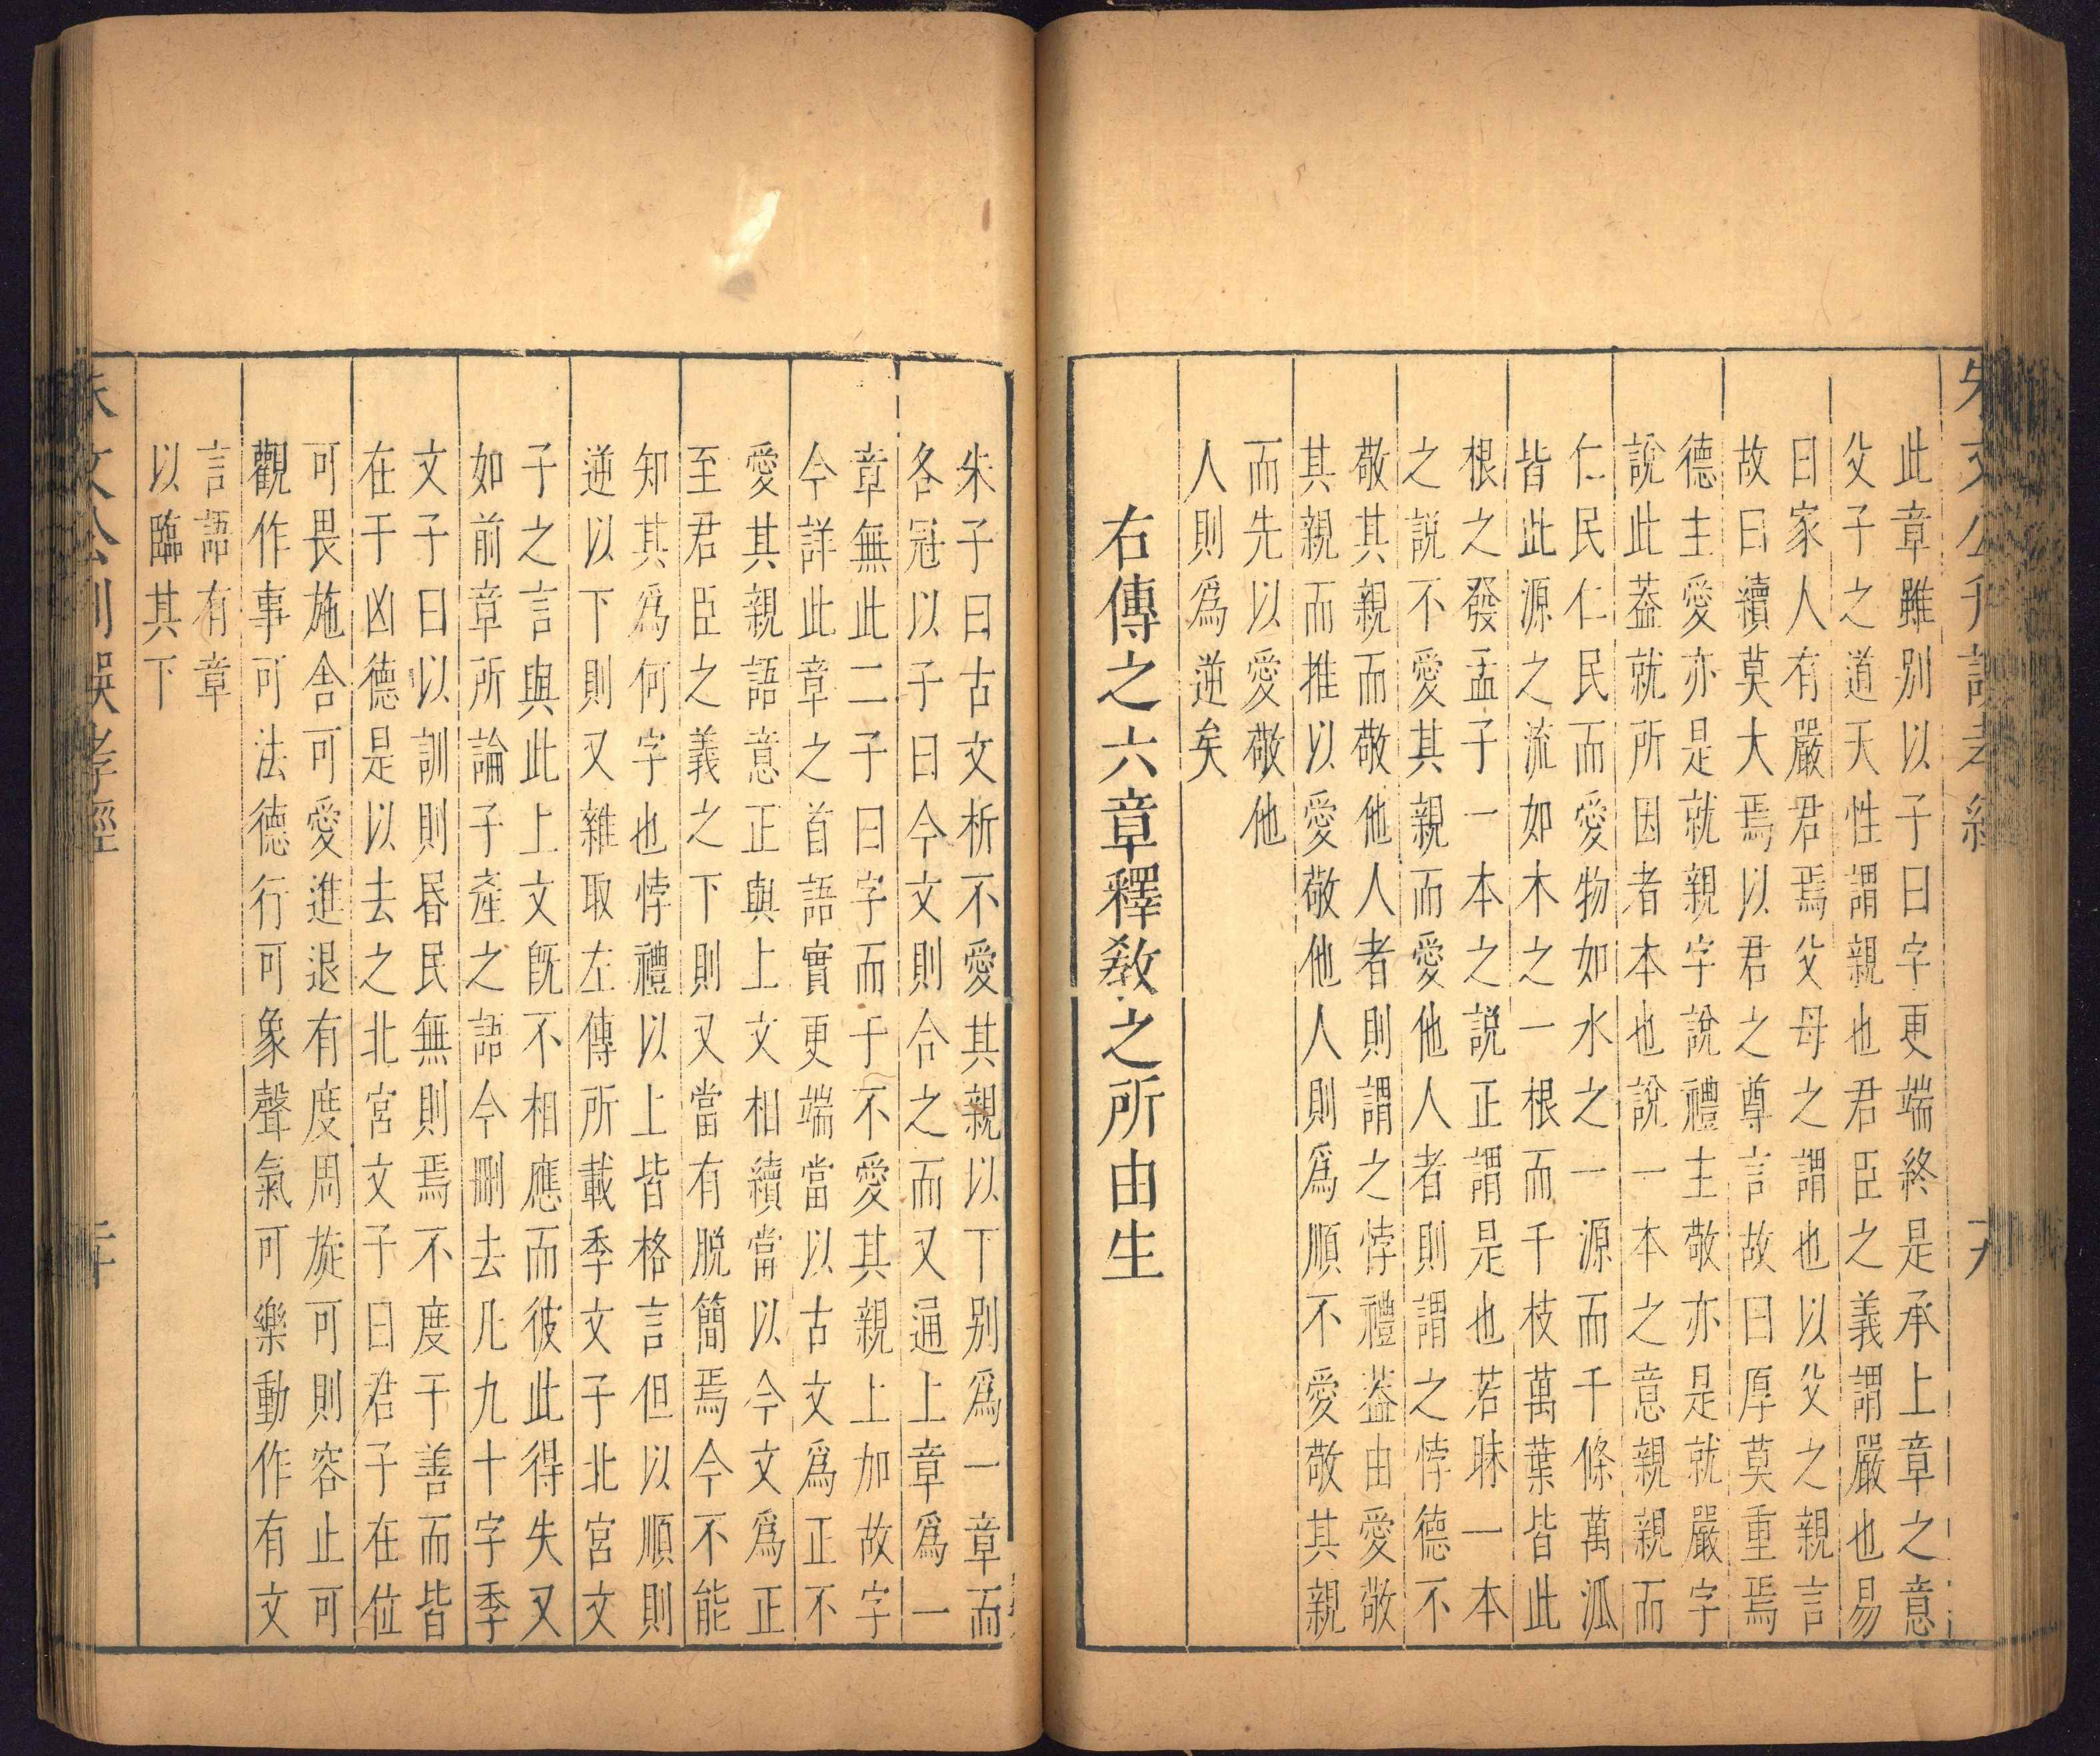 此章雖别以子曰字更端終是承上章之意
父子之道天性謂親也君臣之義謂嚴也易
曰家人有嚴君焉父母之謂也以父之親言
故曰續莫大焉以君之尊言故曰厚莫重焉
德主愛亦是就親字說禮主敬亦是就嚴字
說此葢就所因者本也說一本之意親親而
仁民仁民而愛物如水之一源而千條萬派
皆此源之流如木之一根而千枝萬葉皆此
根之發孟子一本之說正謂是也若昧一本
之說不愛其親而愛他人者則謂之悖德不
敬其親而敬他人者則謂之悖禮葢由愛敬
其親而推以愛敬他人則爲順不愛敬其親
而先以愛敬他
人則爲逆矣
右傳之六章釋敎之所由生
朱子曰古文析不愛其親以下别爲一章而
各冠以子曰今文則合之而又通上章爲一
章無此二子曰字而于不愛其親上加故字
今詳此章之首語實更端當以古文爲正不
愛其親語意正與上文相續當以今文爲正
至君臣之義之下則又當有脱簡焉今不能
知其爲何字也悖禮以上皆格言但以順則
逆以下則又雜取左傳所載季文子北宮文
子之言與此上文既不相應而彼此得失又
如前章所論子產之語今刪去凡九十字季
文子曰以訓則昬民無則焉不度于善而皆
在于凶德是以去之北宮文子曰君子在位
可畏施舍可愛進退有度周旋可則容止可
觀作事可法德行可象聲氣可樂動作有文
言語有章
以臨其下
朱文公刊誤孝經